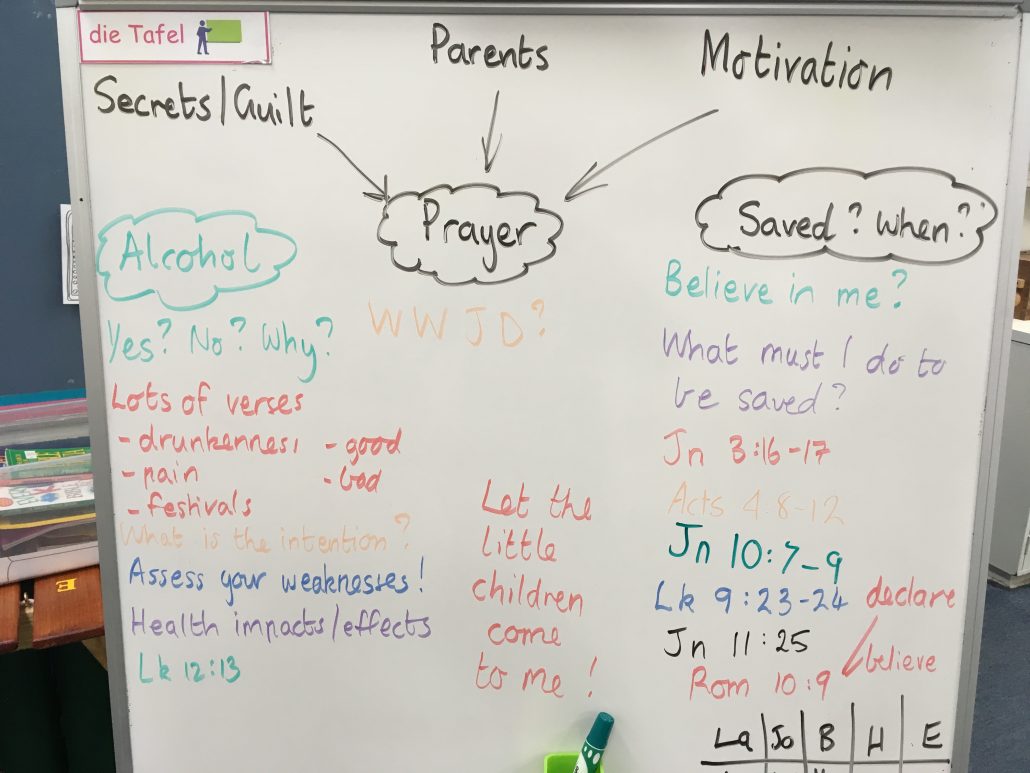 die Tafel
Parents
Motivation
Secrets/Guilt
Prayer
Saved? When?
Alcohol
Yes? No? Why?
Lots of verses
- drunkenness
- pain
- festivals
- good
- bad
What is the intention?
Assess your weaknesses!
Health impacts/effects
Lk 12:13
WWJD?
Let the
little
children
come
to me!
Believe in me?
What must I do to
be saved?
Jn 3:16-17
Acts 4:8-12
Jn 10:7-9
Lk 9:23-24
declare
Jn 11:25
believe
Rom 10:9
La Jo B H E